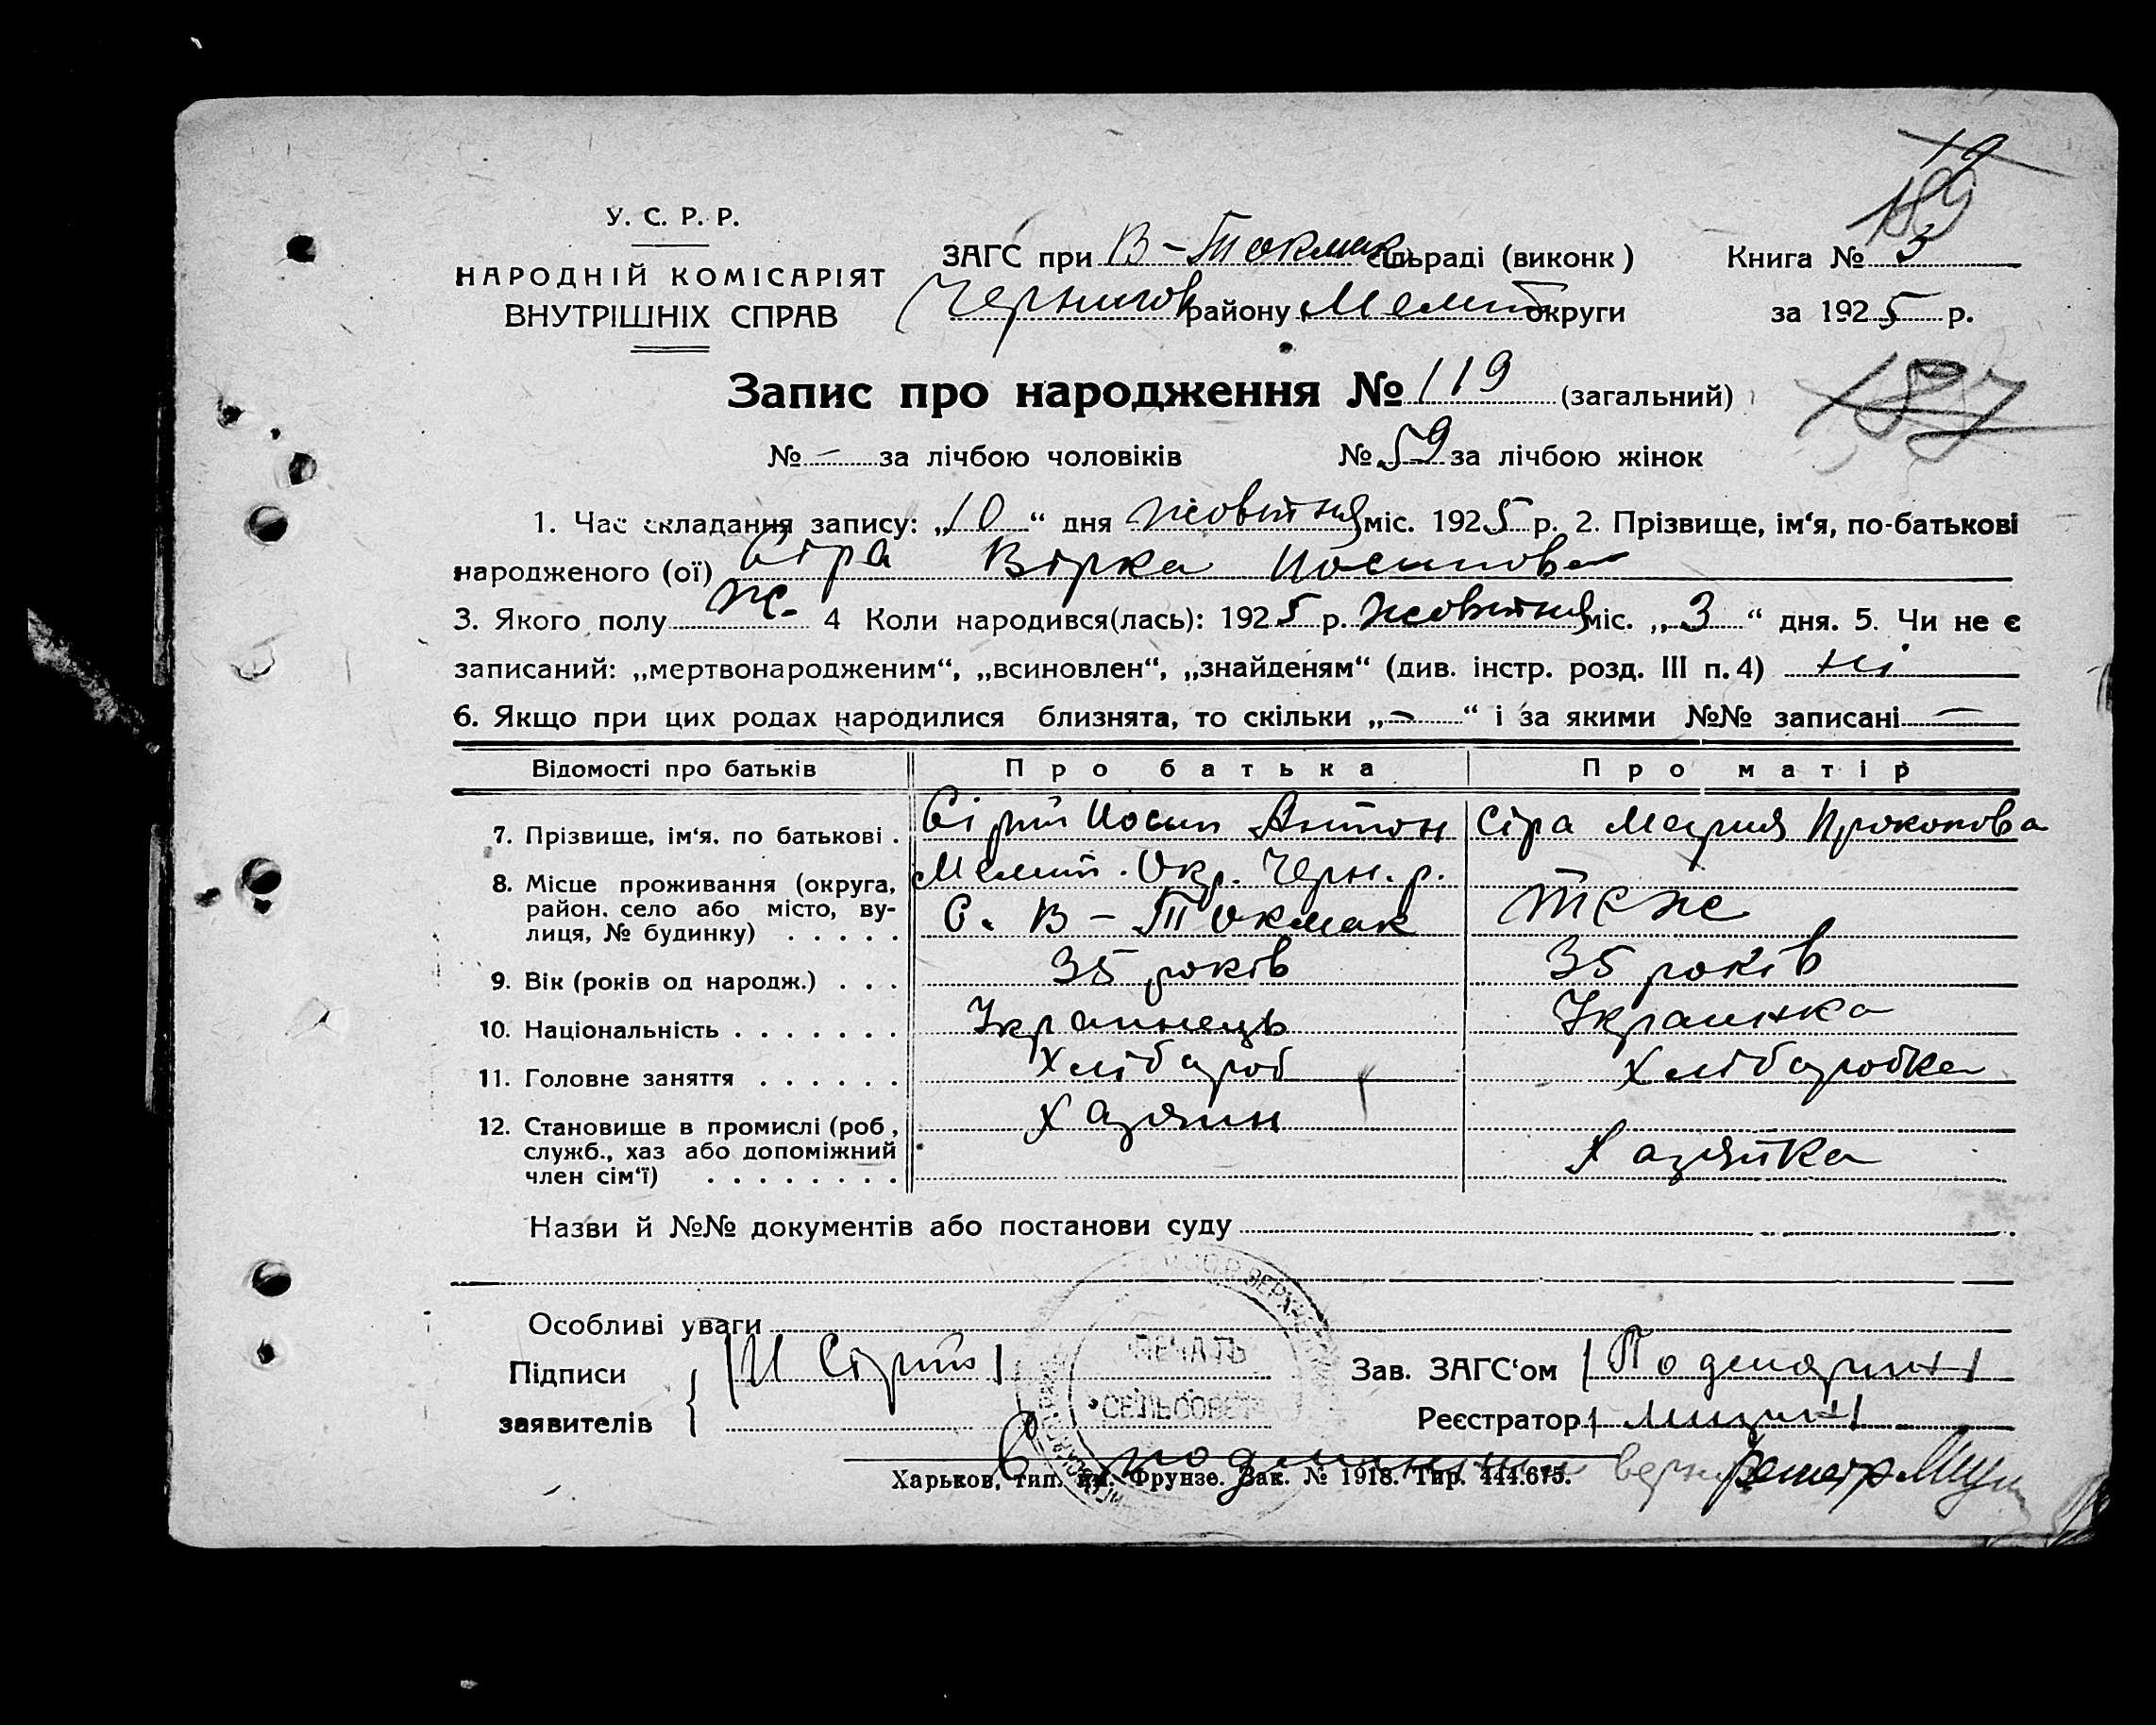 19
189
У. С. Р. Р.
НАРОДНІЙ КОМІСАРІЯТ
ВНУТРІШНІХ СПРАВ
ЗАГС при В-Токмак сільраді (виконк)
Книга № 3
Чернигов району Мелит округи
за 1925 р.
Запис про народження № 119 (загальний)
187
№ — за лічбою чоловіків № 59 за лічбою жінок
1. Час складання запису: „10“ дня жовтня міс. 1925 р. 2. Прізвище, ім‘я, по-батькові
народженого (ої) Сіра Вірка Иосипова
3. Якого полу ж. 4 Коли народився(лась): 1925 р. жовтня міс. „3“ дня. 5. Чи не є
записаний: „мертвонародженим“, „всиновлен“, „знайденям“ (див. інстр. розд. III п. 4) ні
6. Якщо при цих родах народилися близнята, то скільки „—“ і за якими №№ записані —
Відомості про батьків Про батька Про матір
7. Прізвище, ім‘я, по батькові . Сірий Иосип Антон Сіра Мария Прокопова
8. Місце проживання (округа, Мелит. Окр. Черн. р.
район, село або місто, ву- С. В-Токмак теж
лиця, № будинку) . . . . .
9. Вік (років од народж.) . . . 35 років 35 років
10. Національність . . . . . . . Украинець Украинка
11. Головне заняття . . . . . . Хлібороб Хліборобка
12. Становище в промислі (роб, Хазяин
служб., хаз або допоміжний Хазяйка
член сім‘ї) . . . . . . . .
Назви й №№ документів або постанови суду
Особливі уваги
ПЕЧАТЬ
СЕЛЬСОВЕТА
Підписи И Сірий
заявителів
Зав. ЗАГС‘ом
Реєстратор
С подлинним верно
Харьков, тип. им. Фрунзе. Зак. № 1918. Тир. 444.675.